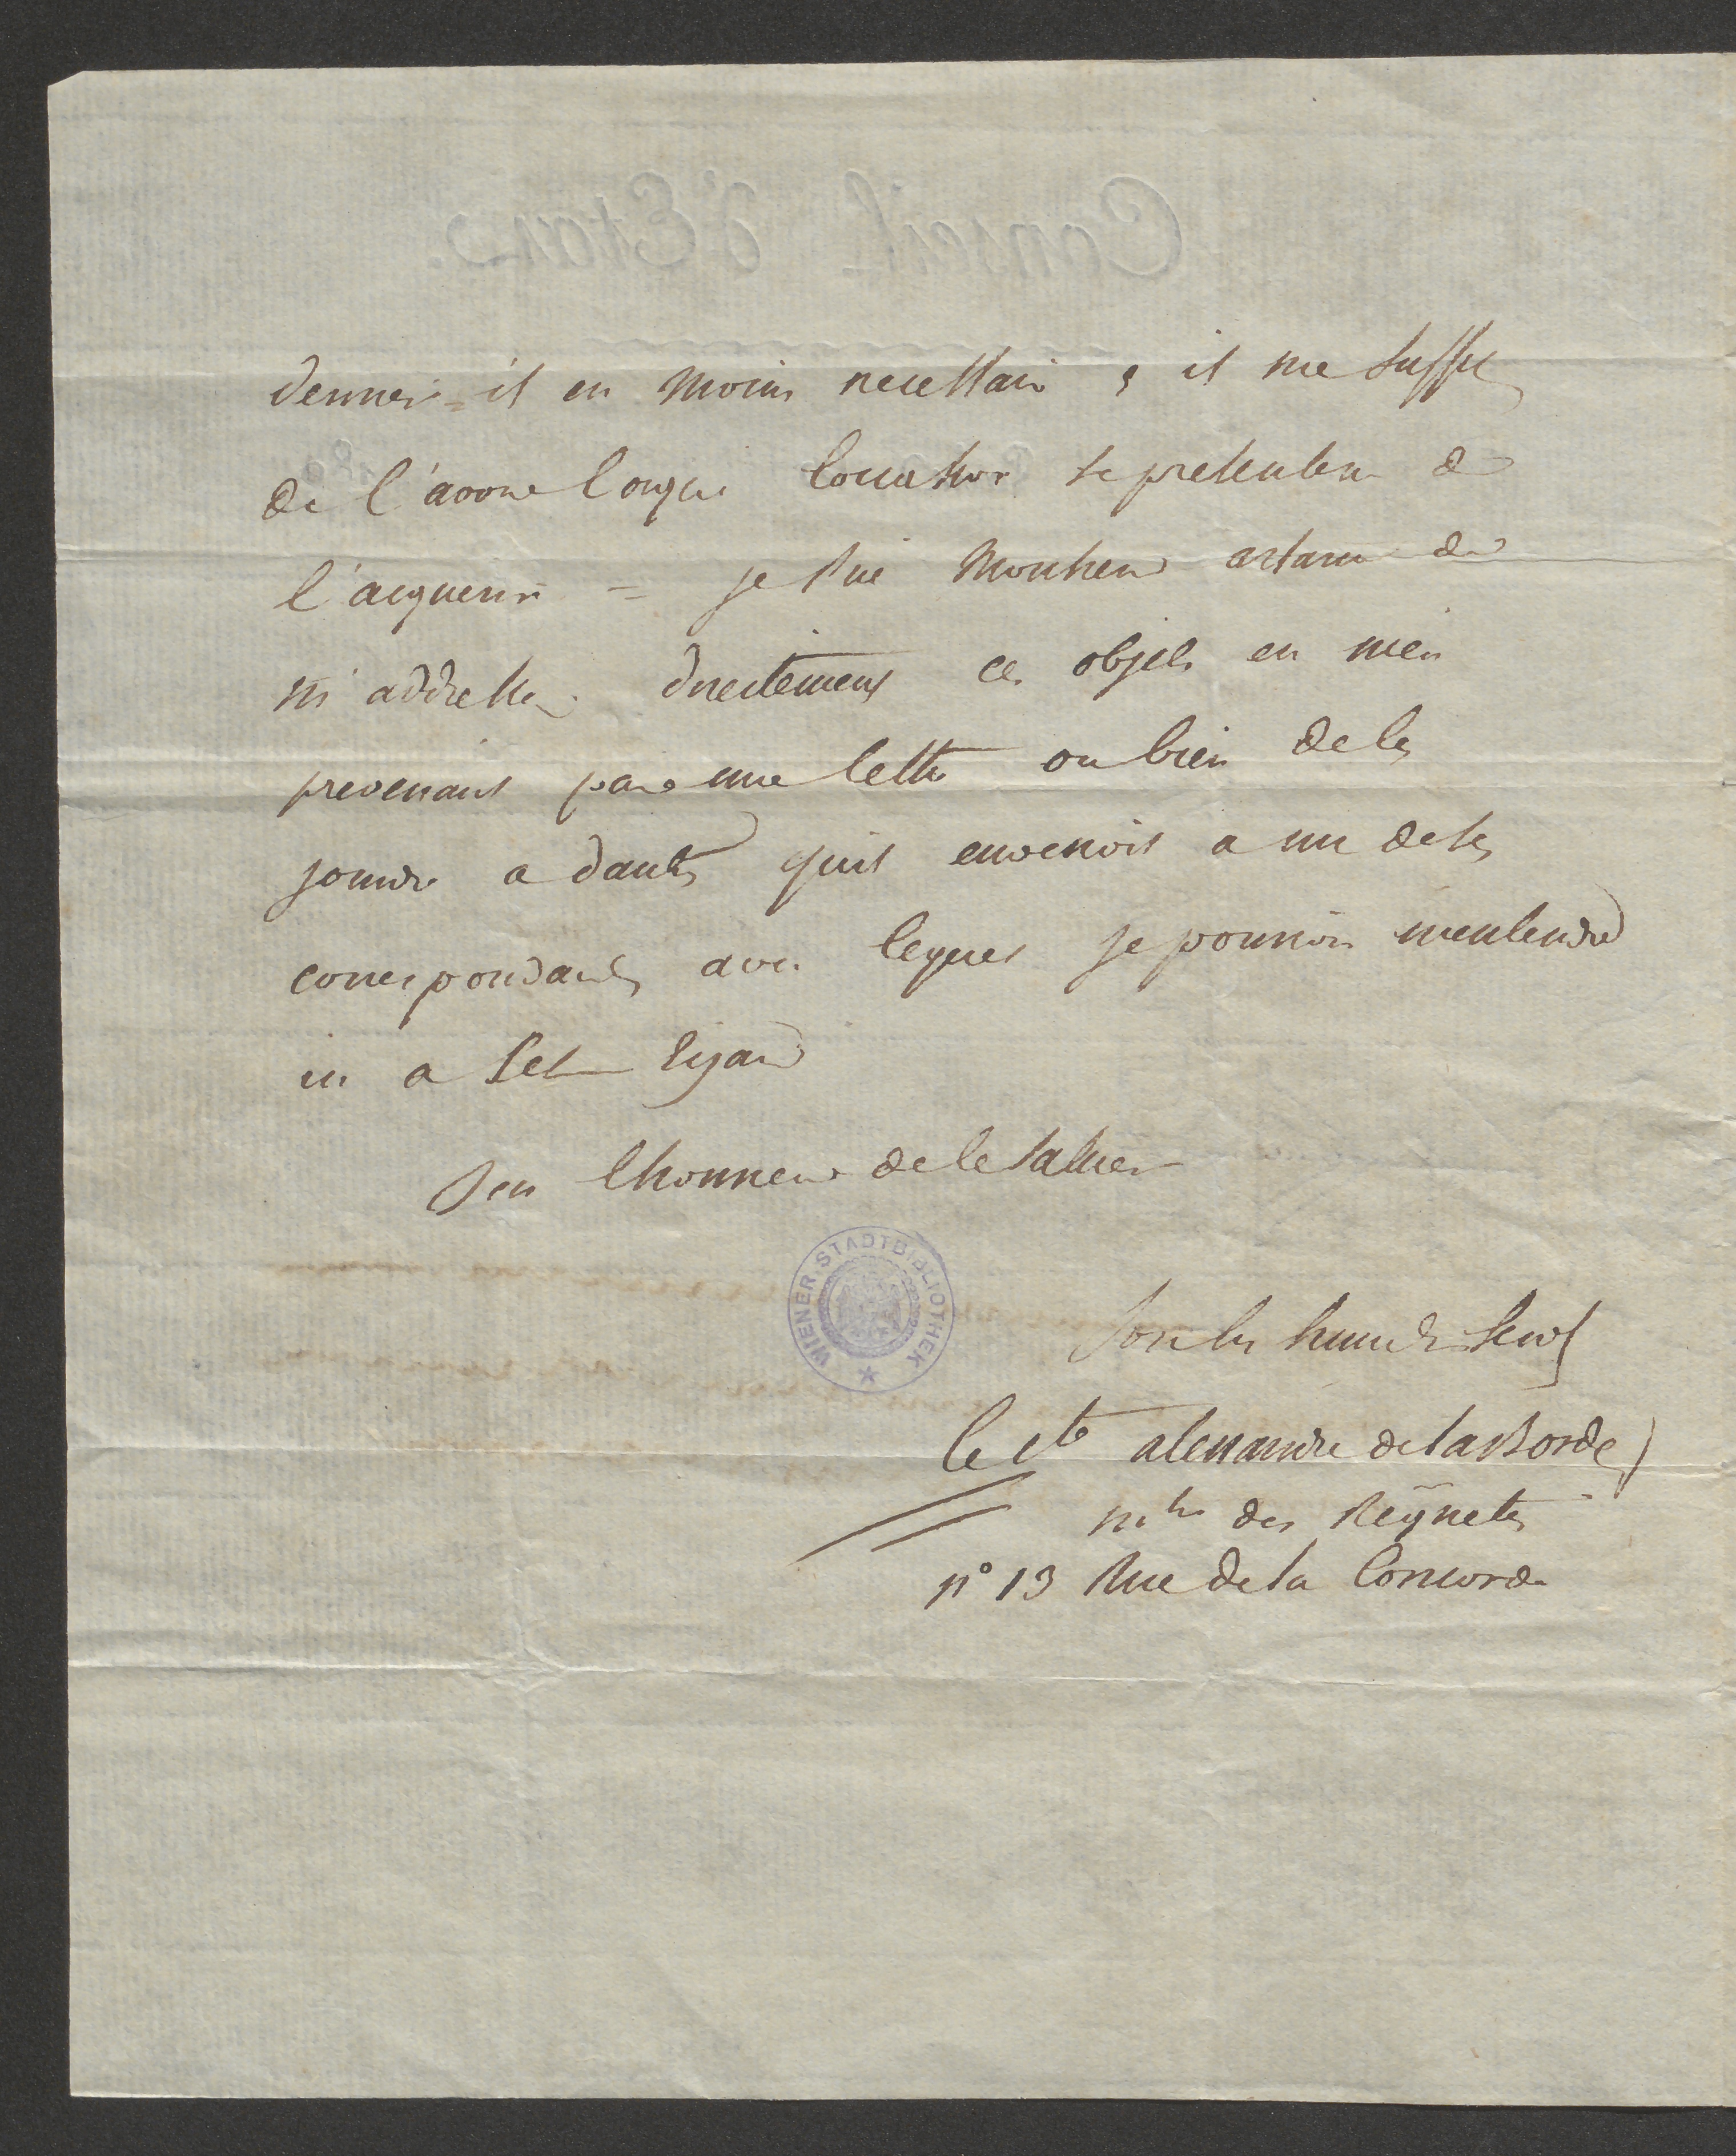 dernier = il est moins necessaire, il me suffit
de l'avoir lorsque l'occasion se presentera de
l'acquerir = je prie Monsieur artaria de
m'addresser directement ces objets en m'en
prevenant par une lettre ou bien de les
joindre a dautres quil enverroit a un de ses
correspondants avec lequel je pourrois mentendre
a cet Egard
Jai lhonneur de le saluer
WIENER STADTBIBLIOTHEK
Son tres humble serv
le cte alexandre de laborde
mtre des Requetes
n° 13 Rue de la Concorde